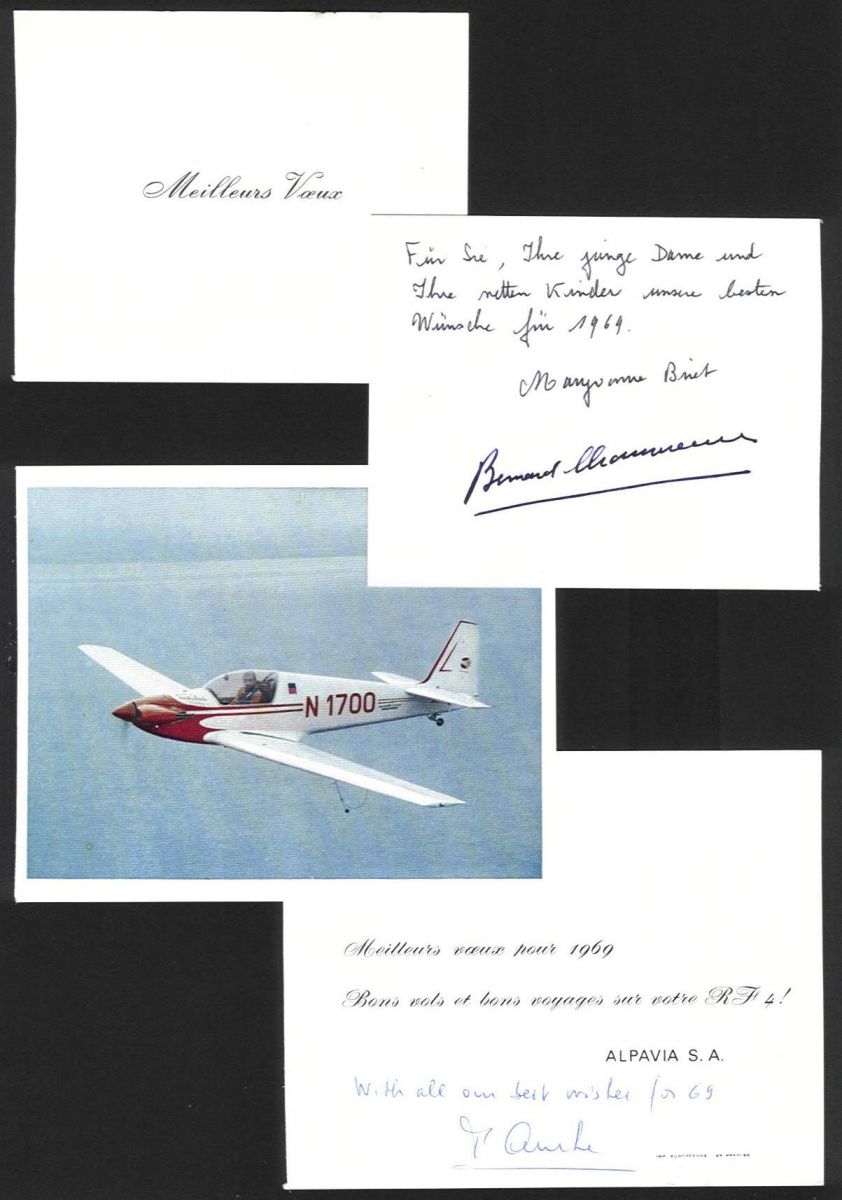 Meilleurs Vœux
Für Sie, Ihre junge Dame und
Ihre netten Kinder unsere besten
Wünsche für 1969.
Maryvonne Briet
Bernard Chauvreau
N 1700
Meilleurs vœux pour 1969
Bons vols et bons voyages sur votre RF 4!
ALPAVIA S. A.
With all our best wishes for 69